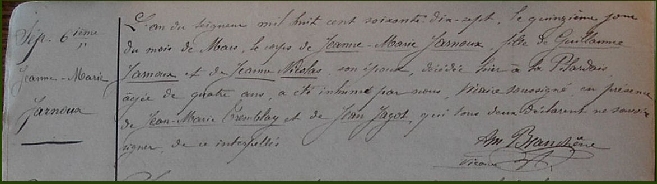 Sép. 6ième
Jeanne-Marie
Jarnoux
L'an du Seigneur mil huit cent soixante dix-sept, le quinzième jour
du mois de Mars, le corps de Jeanne-Marie Jarnoux, fille de Guillaume
Jarnoux et de Jeanne Nicolas son épouse, décédée hier à la
âgée de quatre ans a été inhumé par nous, Vicaire soussigné en présence
de Jean-Marie Tremblay et de Jean Jagot, qui tous deux déclarent ne savoir
signer, de ce interpellés
Vicaire